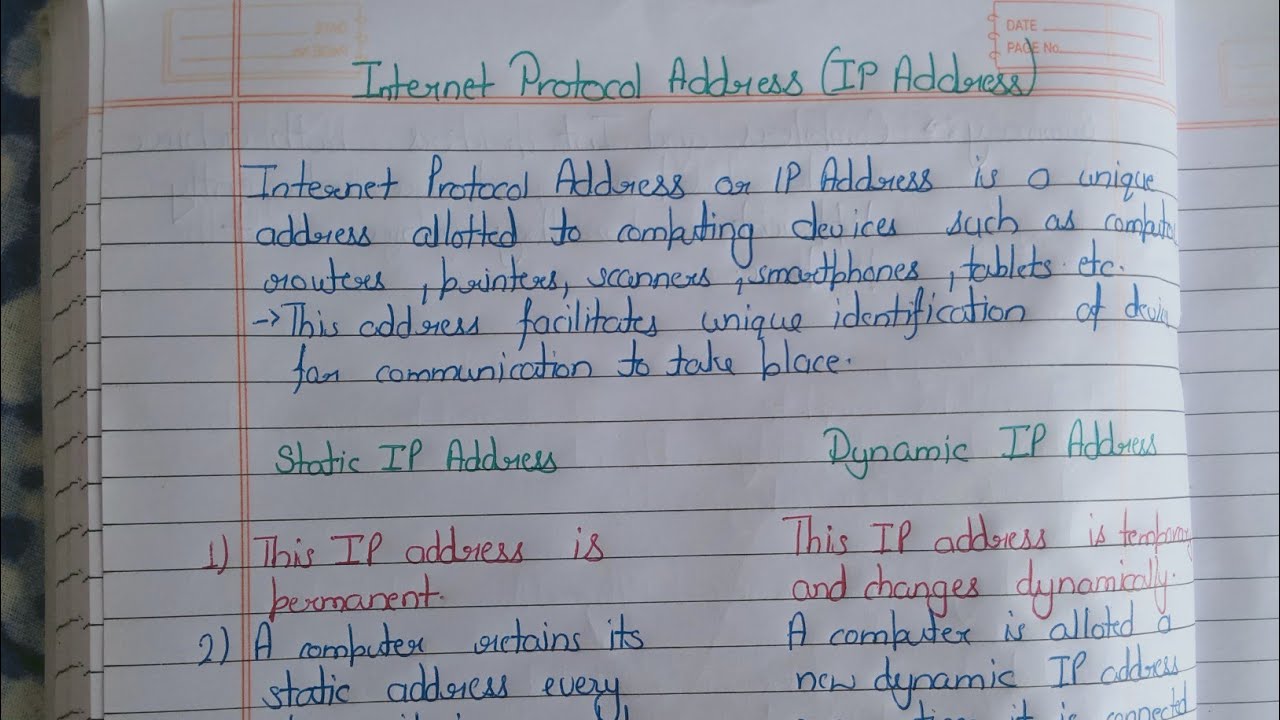 DATE
PAGE No.
Internet Protocol Address (IP Address)
Internet Protocol Address or IP Address is a unique
address allotted to computing devices such as
routers, printers, scanners, smartphones, tablets etc.
→ This address facilitates unique identification of
for communication to take place.
Static IP Address
Dynamic IP Address
1) This IP address is
permanent.
This IP address is temporary
and changes dynamically.
2) A computer retains its
static address every
A computer is alloted a
new dynamic IP address
it is connected